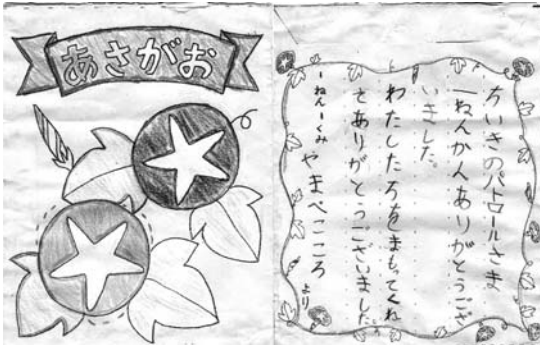 あさがお
ちいきのパトロールさま
一ねんかんありがとうござ
いました。
わたしたちをまもってくれ
てありがとうございました。
一ねん一くみ やまべこころ より